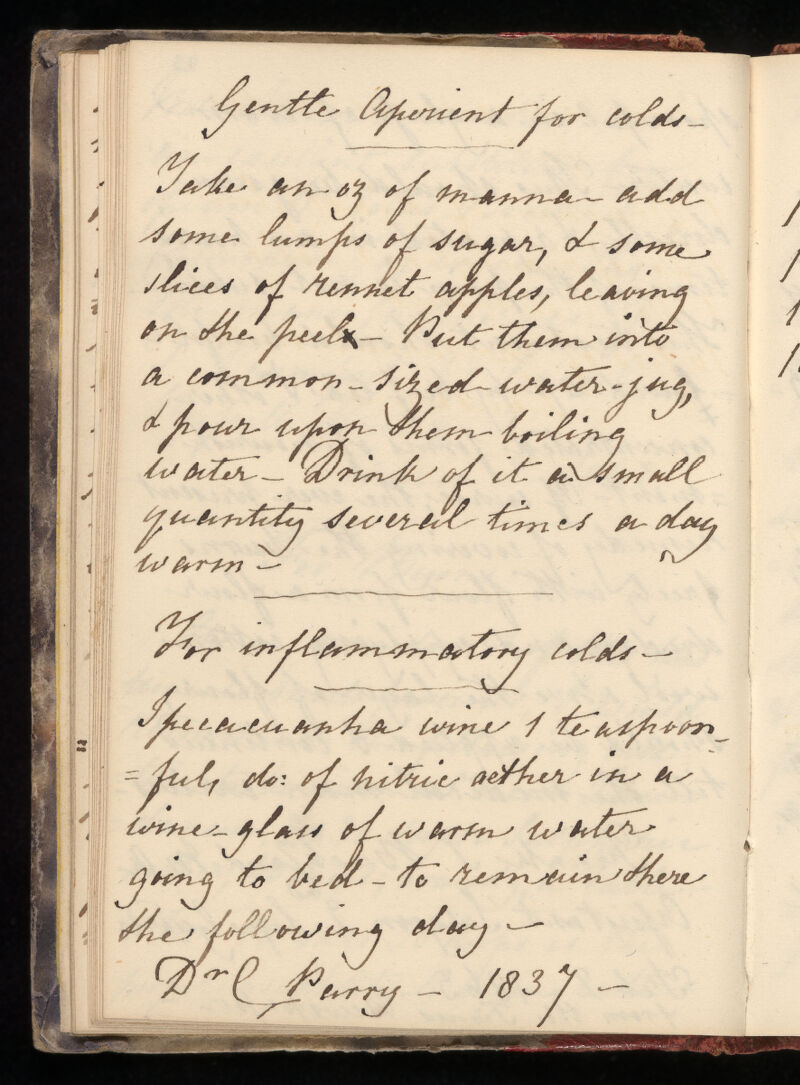 Gentle Aperient for colds -
Take an oz of manna - add
some lumps of sugar, & some
slices of rennet apples, leaving
on the peel - Put them into
a common-sized water-jug,
& pour upon them boiling
water - Drink of it a small
quantity several times a day
warm -
For inflammatory colds -
Ipecacuanha wine 1 teaspoon-
=ful, do: of nitric aether in a
wine-glass of warm water
going to bed - to remain there
the following day -
Dr C Parry - 1837 -